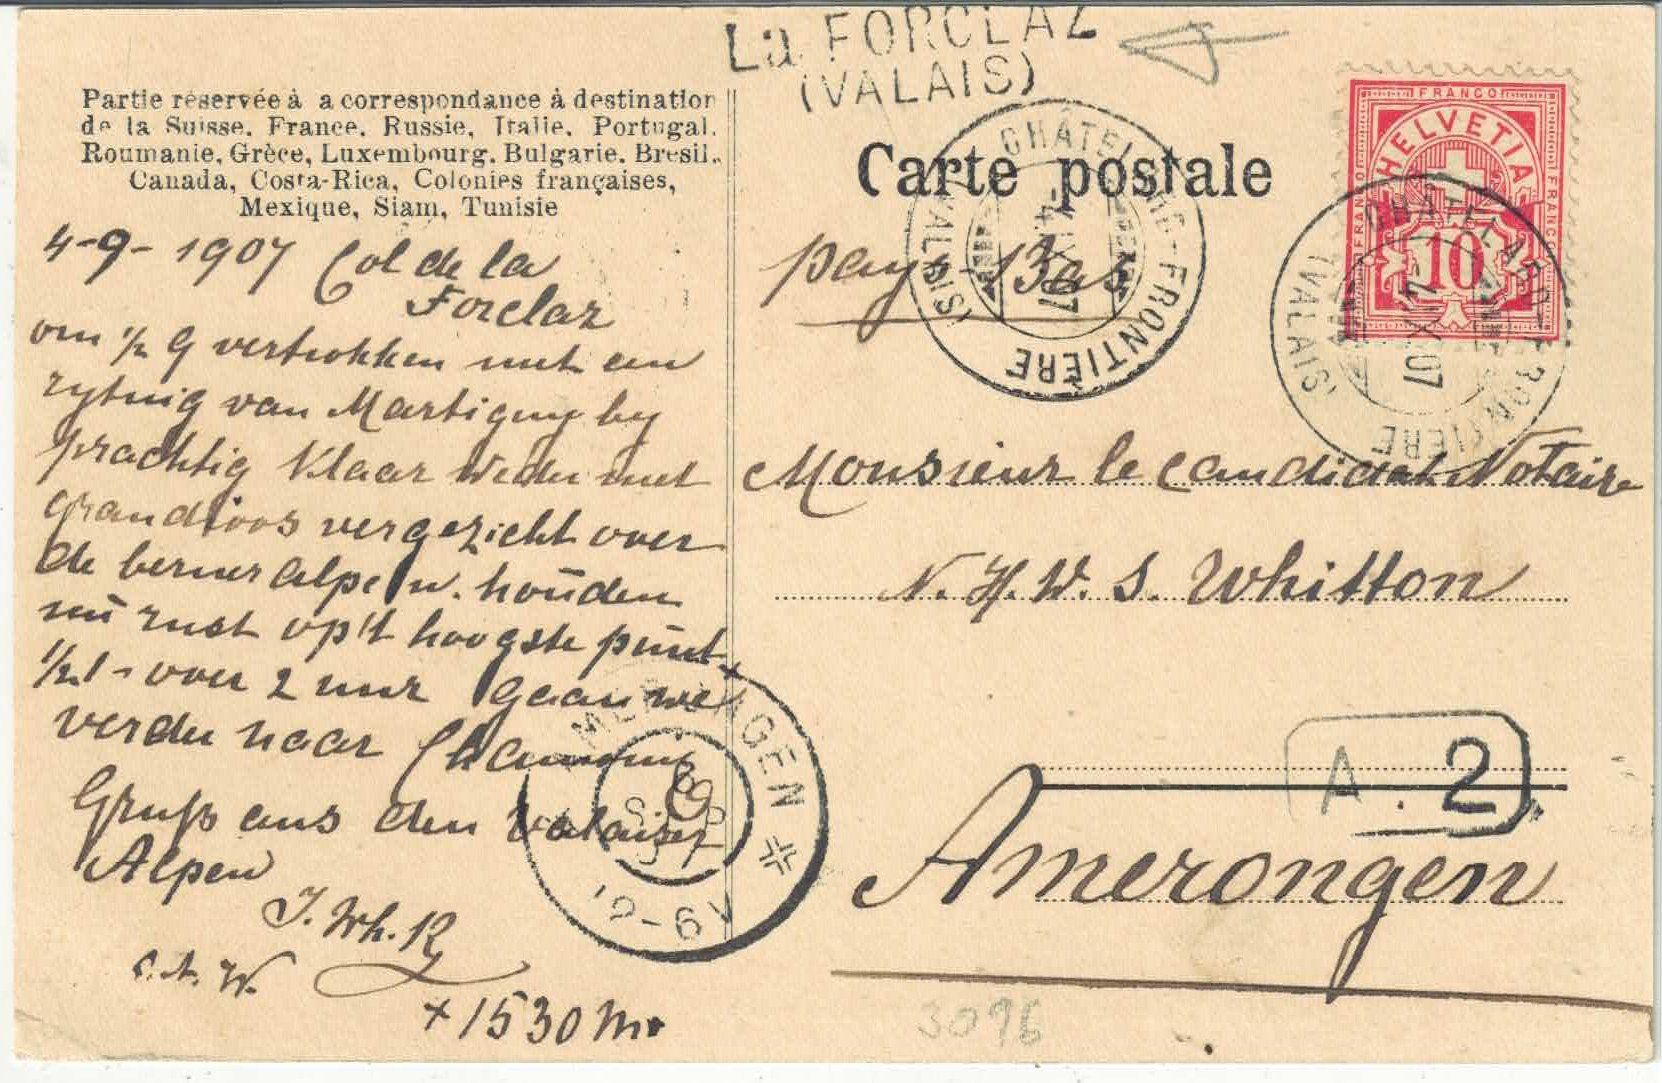 La FORCLAZ
(VALAIS)
Partie réservée à a correspondance à destination
de la Suisse, France, Russie, Italie, Portugal,
Roumanie, Grèce, Luxembourg, Bulgarie, Bresil,
Canada, Costa-Rica, Colonies françaises,
Mexique, Siam, Tunisie
Carte postale
FRANCO
HELVETIA
FRANCO
FRANCO
10
CHÂTELARD-FRONTIÈRE
(VALAIS)
-4.IX.07
CHÂTELARD-FRONTIÈRE
(VALAIS)
IX 07
4-9-1907 Col de la
Forclaz
om 1/2 9 vertrokken met een
rytuig van Martigny by
prachtig klaar weder met
grandioos vergezicht over
de berner alpen. houden
nu rust op't hoogste punt +
1/2 1 - over 2 uur gaan we
verder naar Chamouny
Gruss aus den Valaiser
Alpen
J. Wh. Ry
+ 1530 M.
pays Bas
Monsieur le candidat Notaire
N. H. W. S. Whitton
Amerongen
A. 2
3096